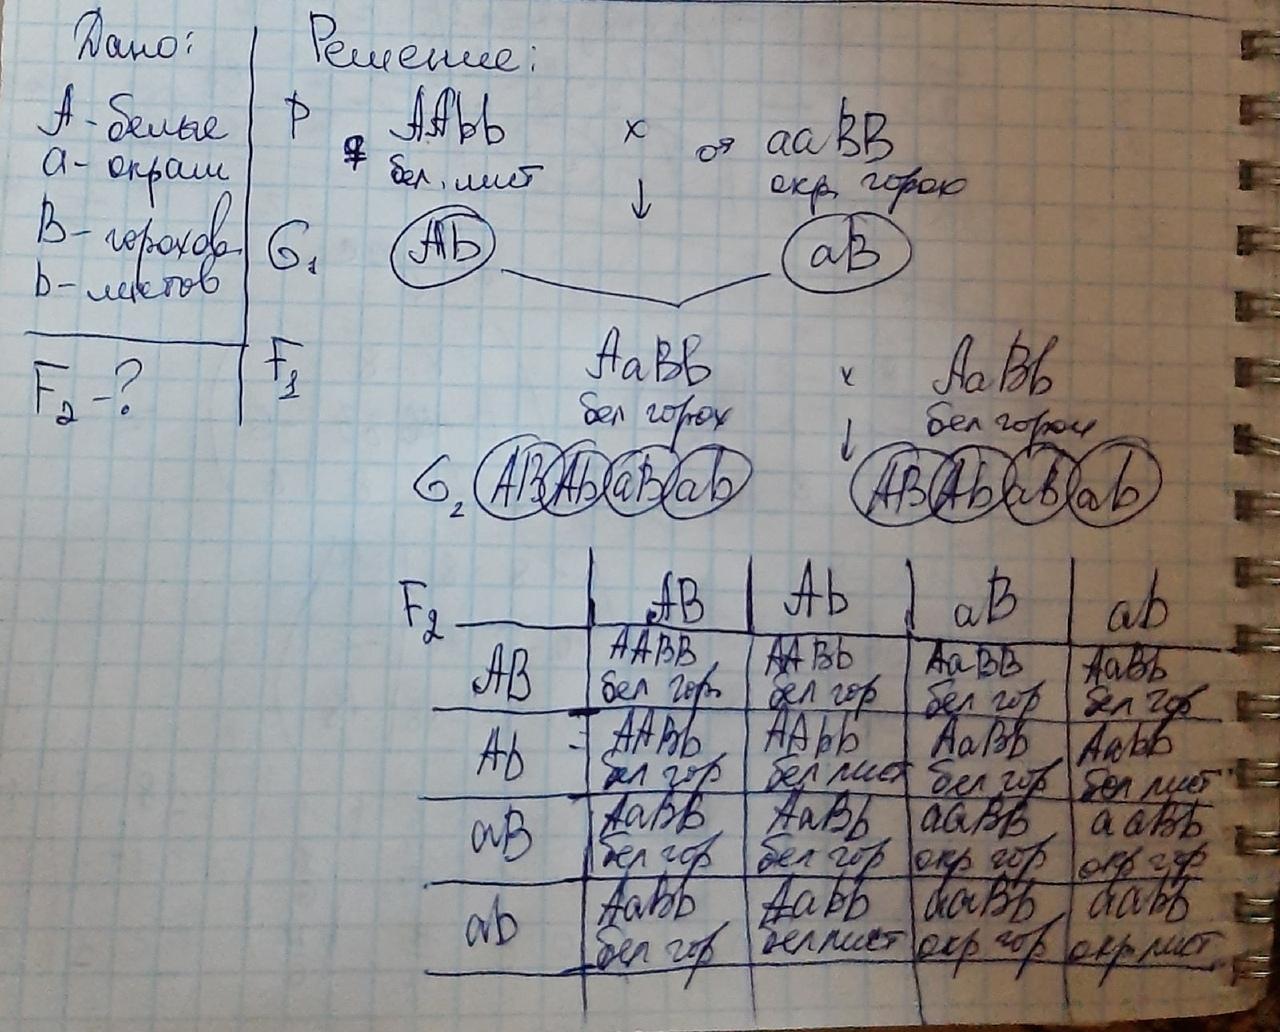 Дано: Решение:
А - белые
а - окраш
В - горохов.
b - листов
F₂ - ?
P ♀ AAbb x ♂ aaBB
бел. лист ↓ окр. горох
G₁ Ab aB
F₁ AaBb x AaBb
бел горох ↓ бел горох
G₂ AB Ab aB ab AB Ab aB ab
F₂ AB Ab aB ab
AB AABB AABb AaBB AaBb
бел гор. бел гор бел гор бел гор
Ab AABb AAbb AaBb Aabb
бел гор бел лист бел гор бел лист
aB AaBB AaBb aaBB aaBb
бел гор бел гор окр гор окр гор
ab AaBb Aabb aaBb aabb
бел гор бел лист окр гор окр лист